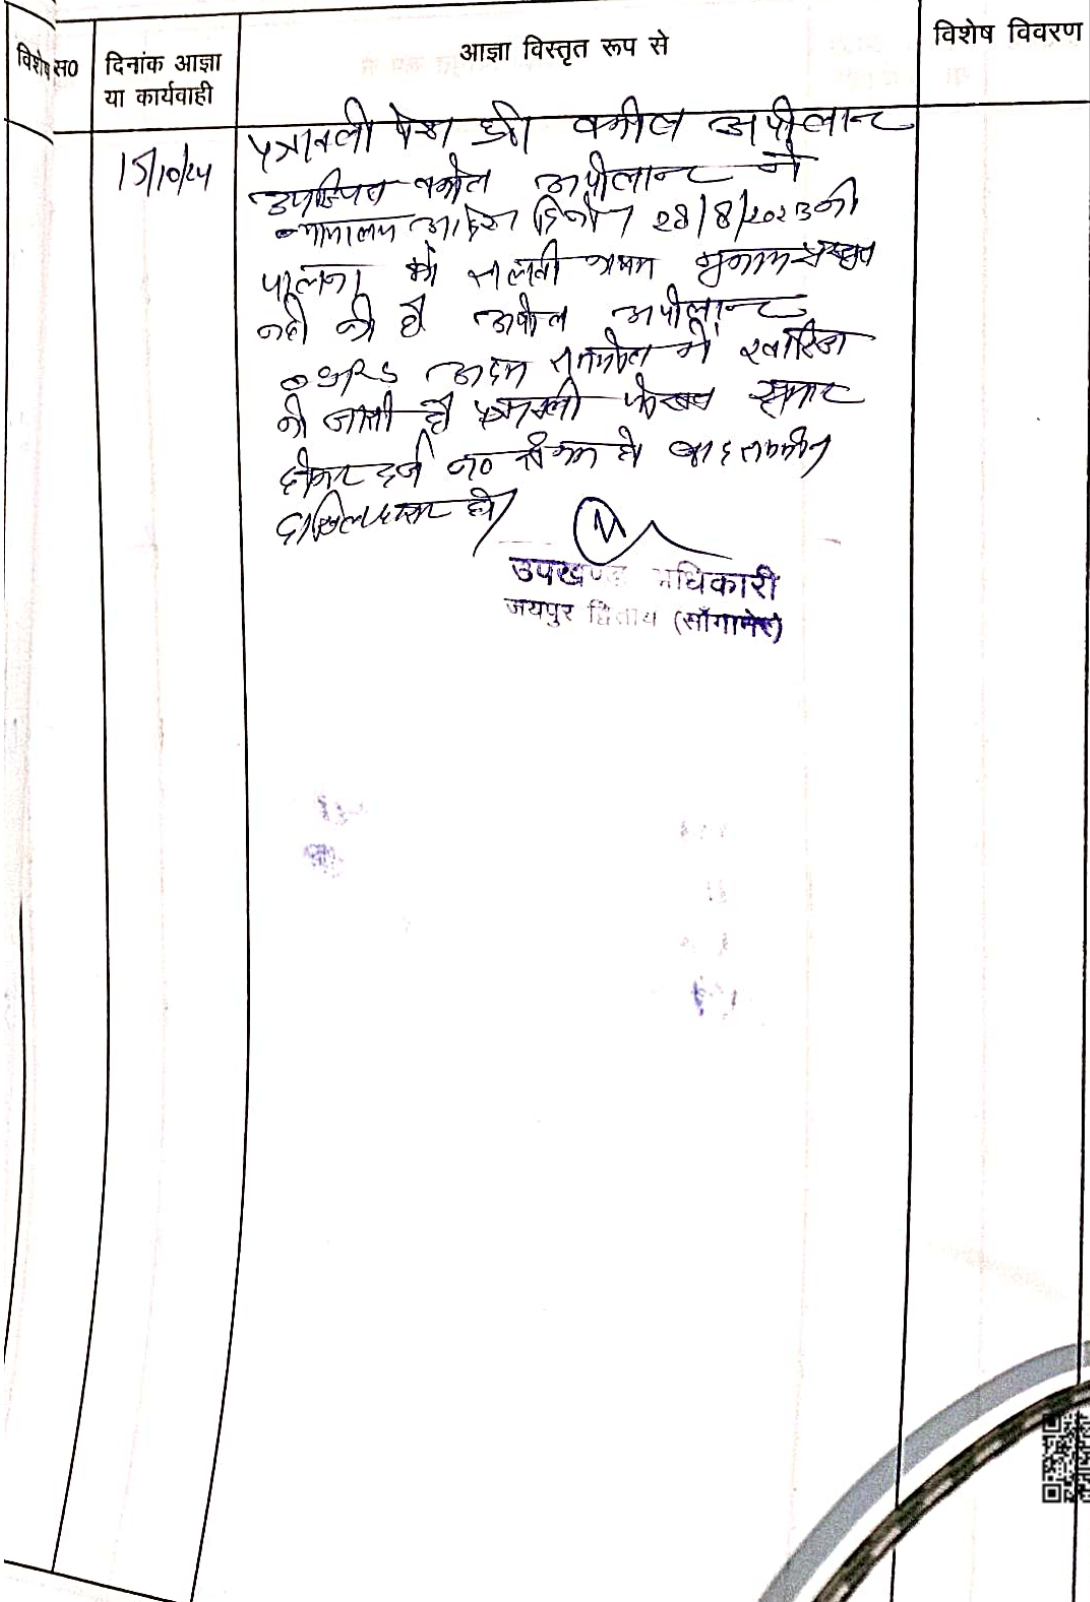 विशेष स0
दिनांक आज्ञा
या कार्यवाही
आज्ञा विस्तृत रूप से
विशेष विवरण
15/10/24
पत्रावली पेश हुई वकील अपीलान्ट
उपस्थित वकील अपीलान्ट ने
न्यायालय आदेश दिनांक 28/8/2023 की
पालना में तलबी
नही की है अपील अपीलान्ट
अदम तकमील में खारिज
की जाती है पत्रावली फैसल शुमार
होकर दर्ज न0 से कम हो बाद तकमील
दाखिल दफ्तर हो
उपखण्ड अधिकारी
जयपुर द्वितीय (साँगानेर)